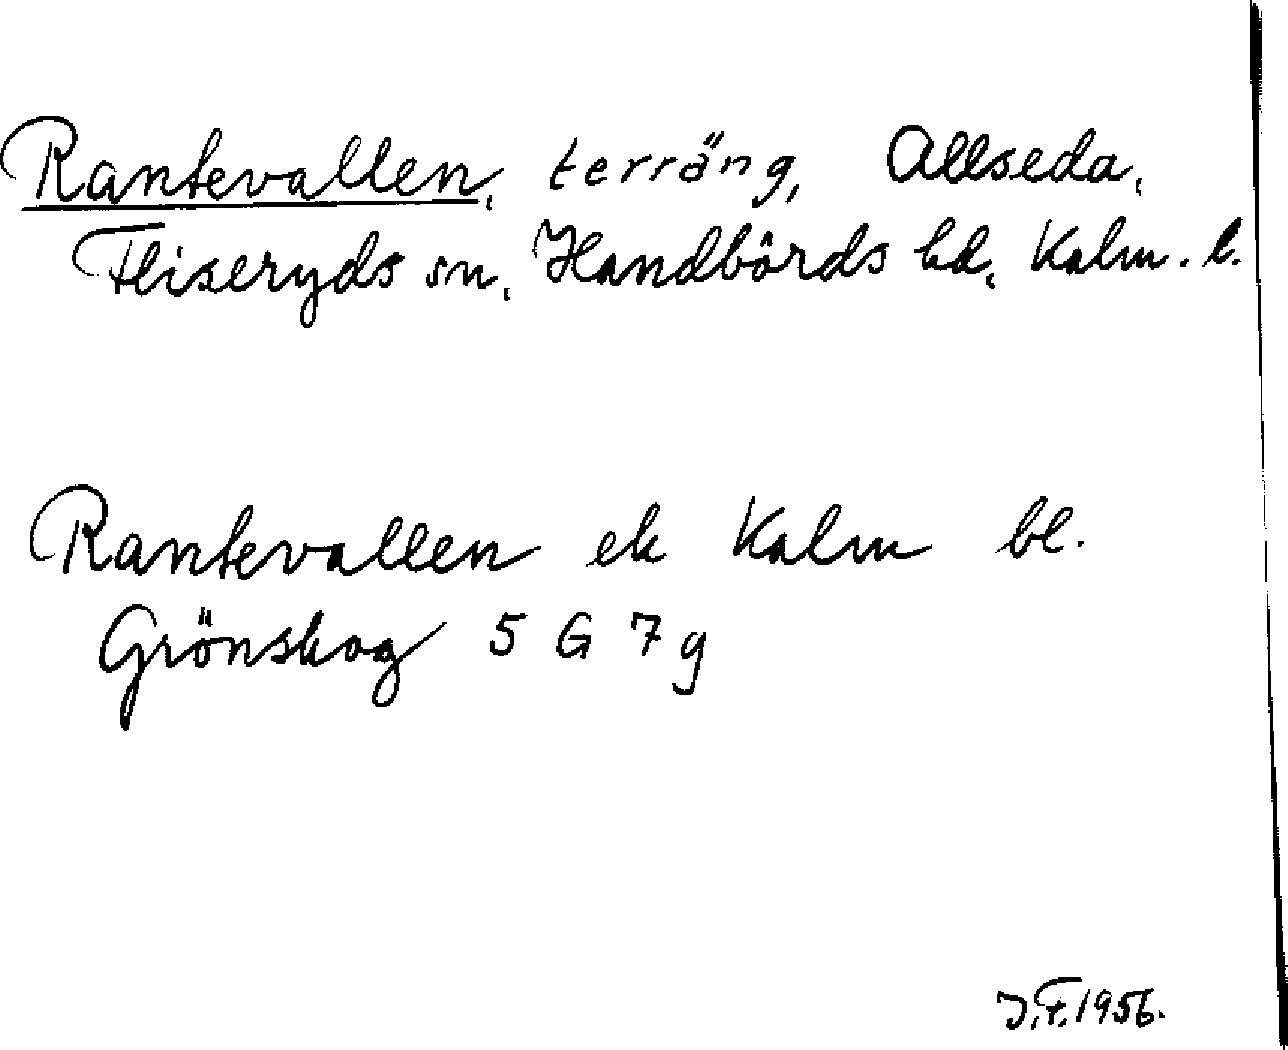 Rantevallen, terräng, Allseda,
Fliseryds sn, Handbörds hd, Kalm. l.
Rantevallen ek Kalm bl.
Grönskog 5 G 7 g
J.F. 1956.